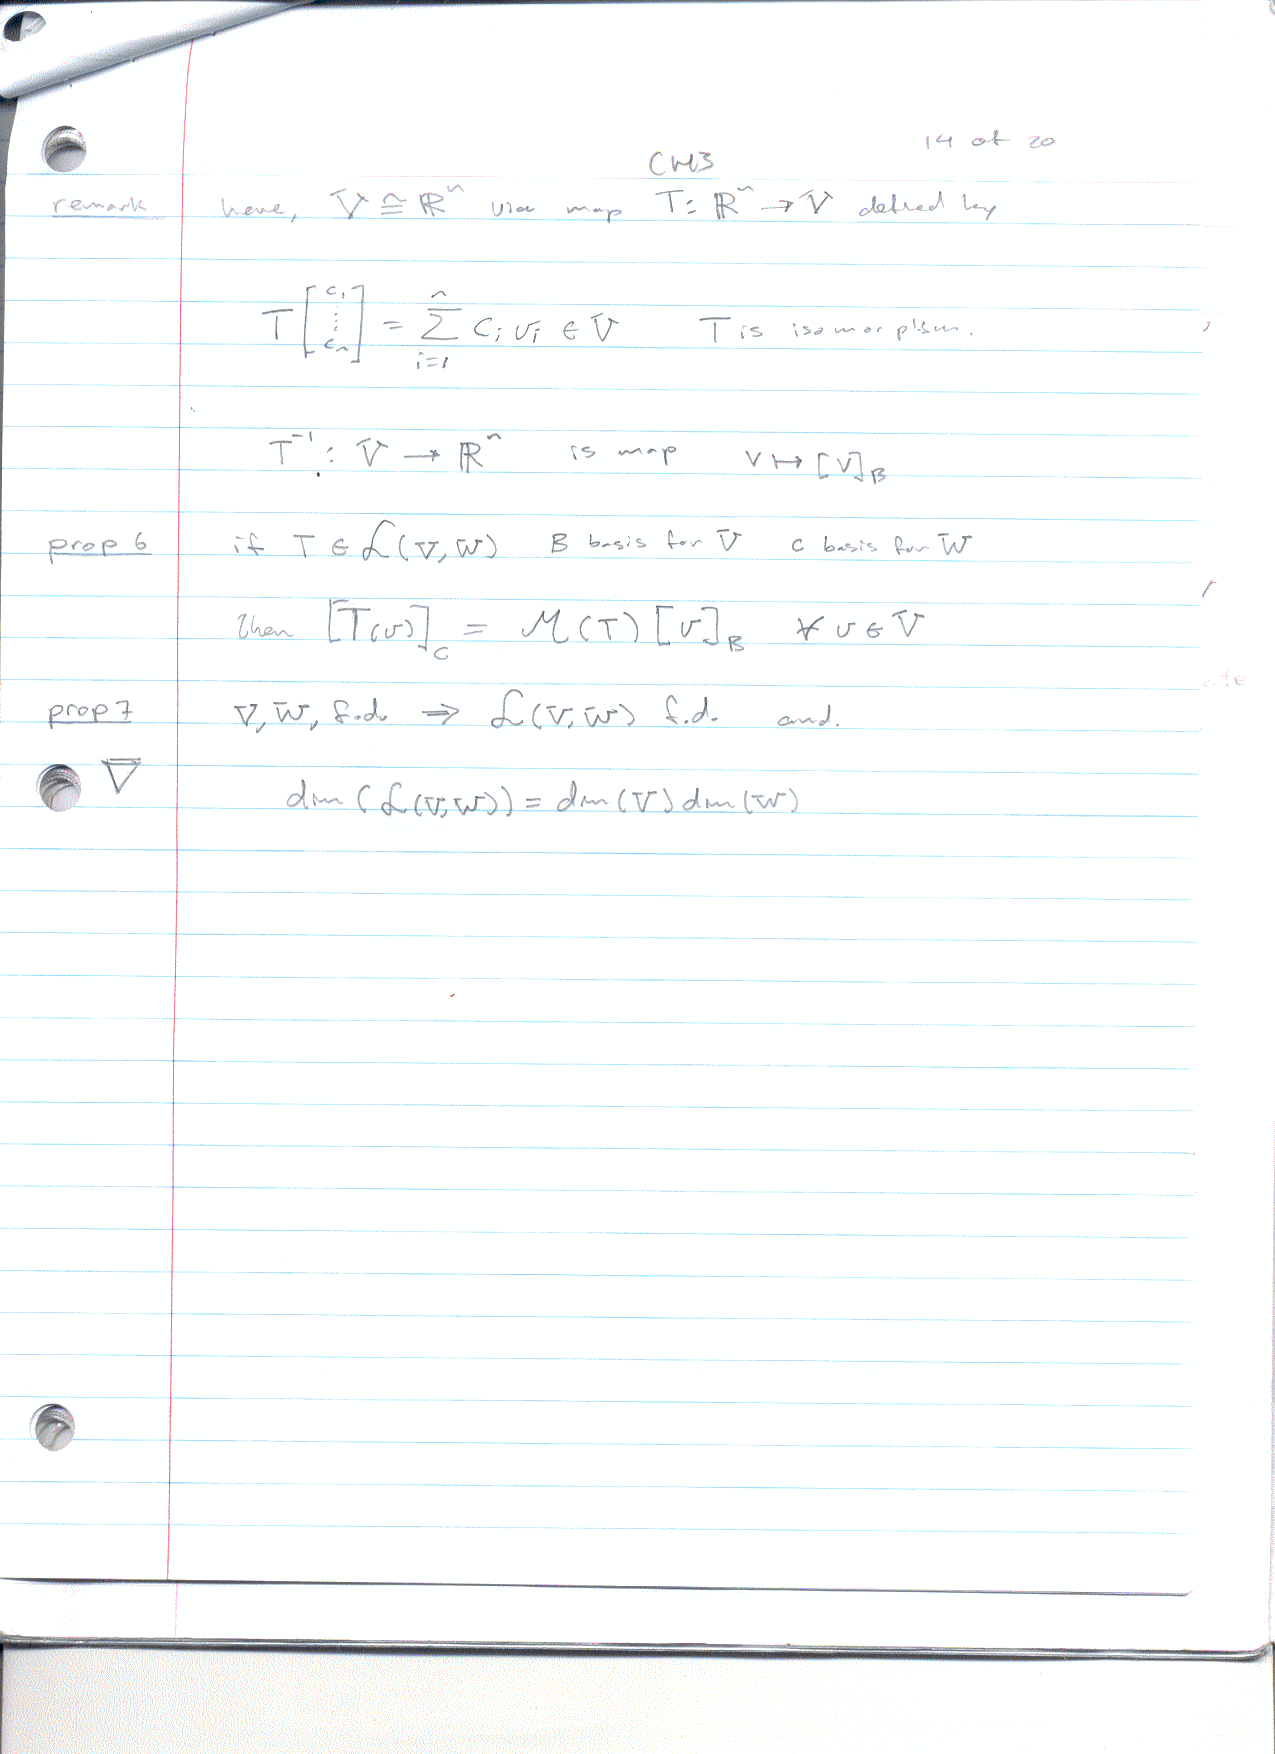 14 of 20
CH3
remark here, V ≅ ℝⁿ via map T: ℝⁿ → V defined by
T [c₁ ⋮ cₙ] = Σᵢ₌₁ⁿ cᵢ vᵢ ∈ V T is isomorphism.
T⁻¹: V → ℝⁿ is map v ↦ [v]_B
prop 6 if T ∈ ℒ(V, W) B basis for V C basis for W
then [T(v)]_C = ℳ(T) [v]_B ∀ v ∈ V
prop 7 V, W, f.d. ⇒ ℒ(V, W) f.d. and.
∇ dim (ℒ(V, W)) = dim(V) dim(W)